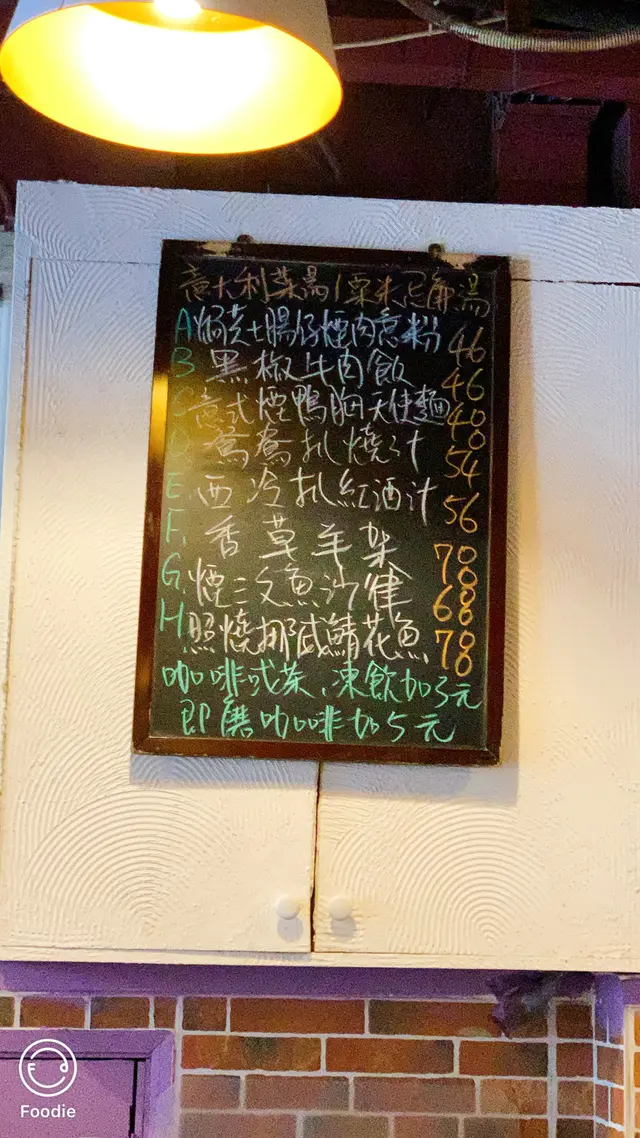 意大利菜湯/粟米忌廉湯
A 焗芝士腸仔煙肉意粉 46
B 黑椒牛肉飯 46
C 意式煙鴨胸天使麵 48
D 鴛鴦扒燒汁 54
E 西冷扒紅酒汁 56
F. 香草羊架 78
G. 煙三文魚沙律 68
H 照燒挪威鯖花魚 78
咖啡或茶、凍飲加3元
即磨咖啡加5元
Foodie